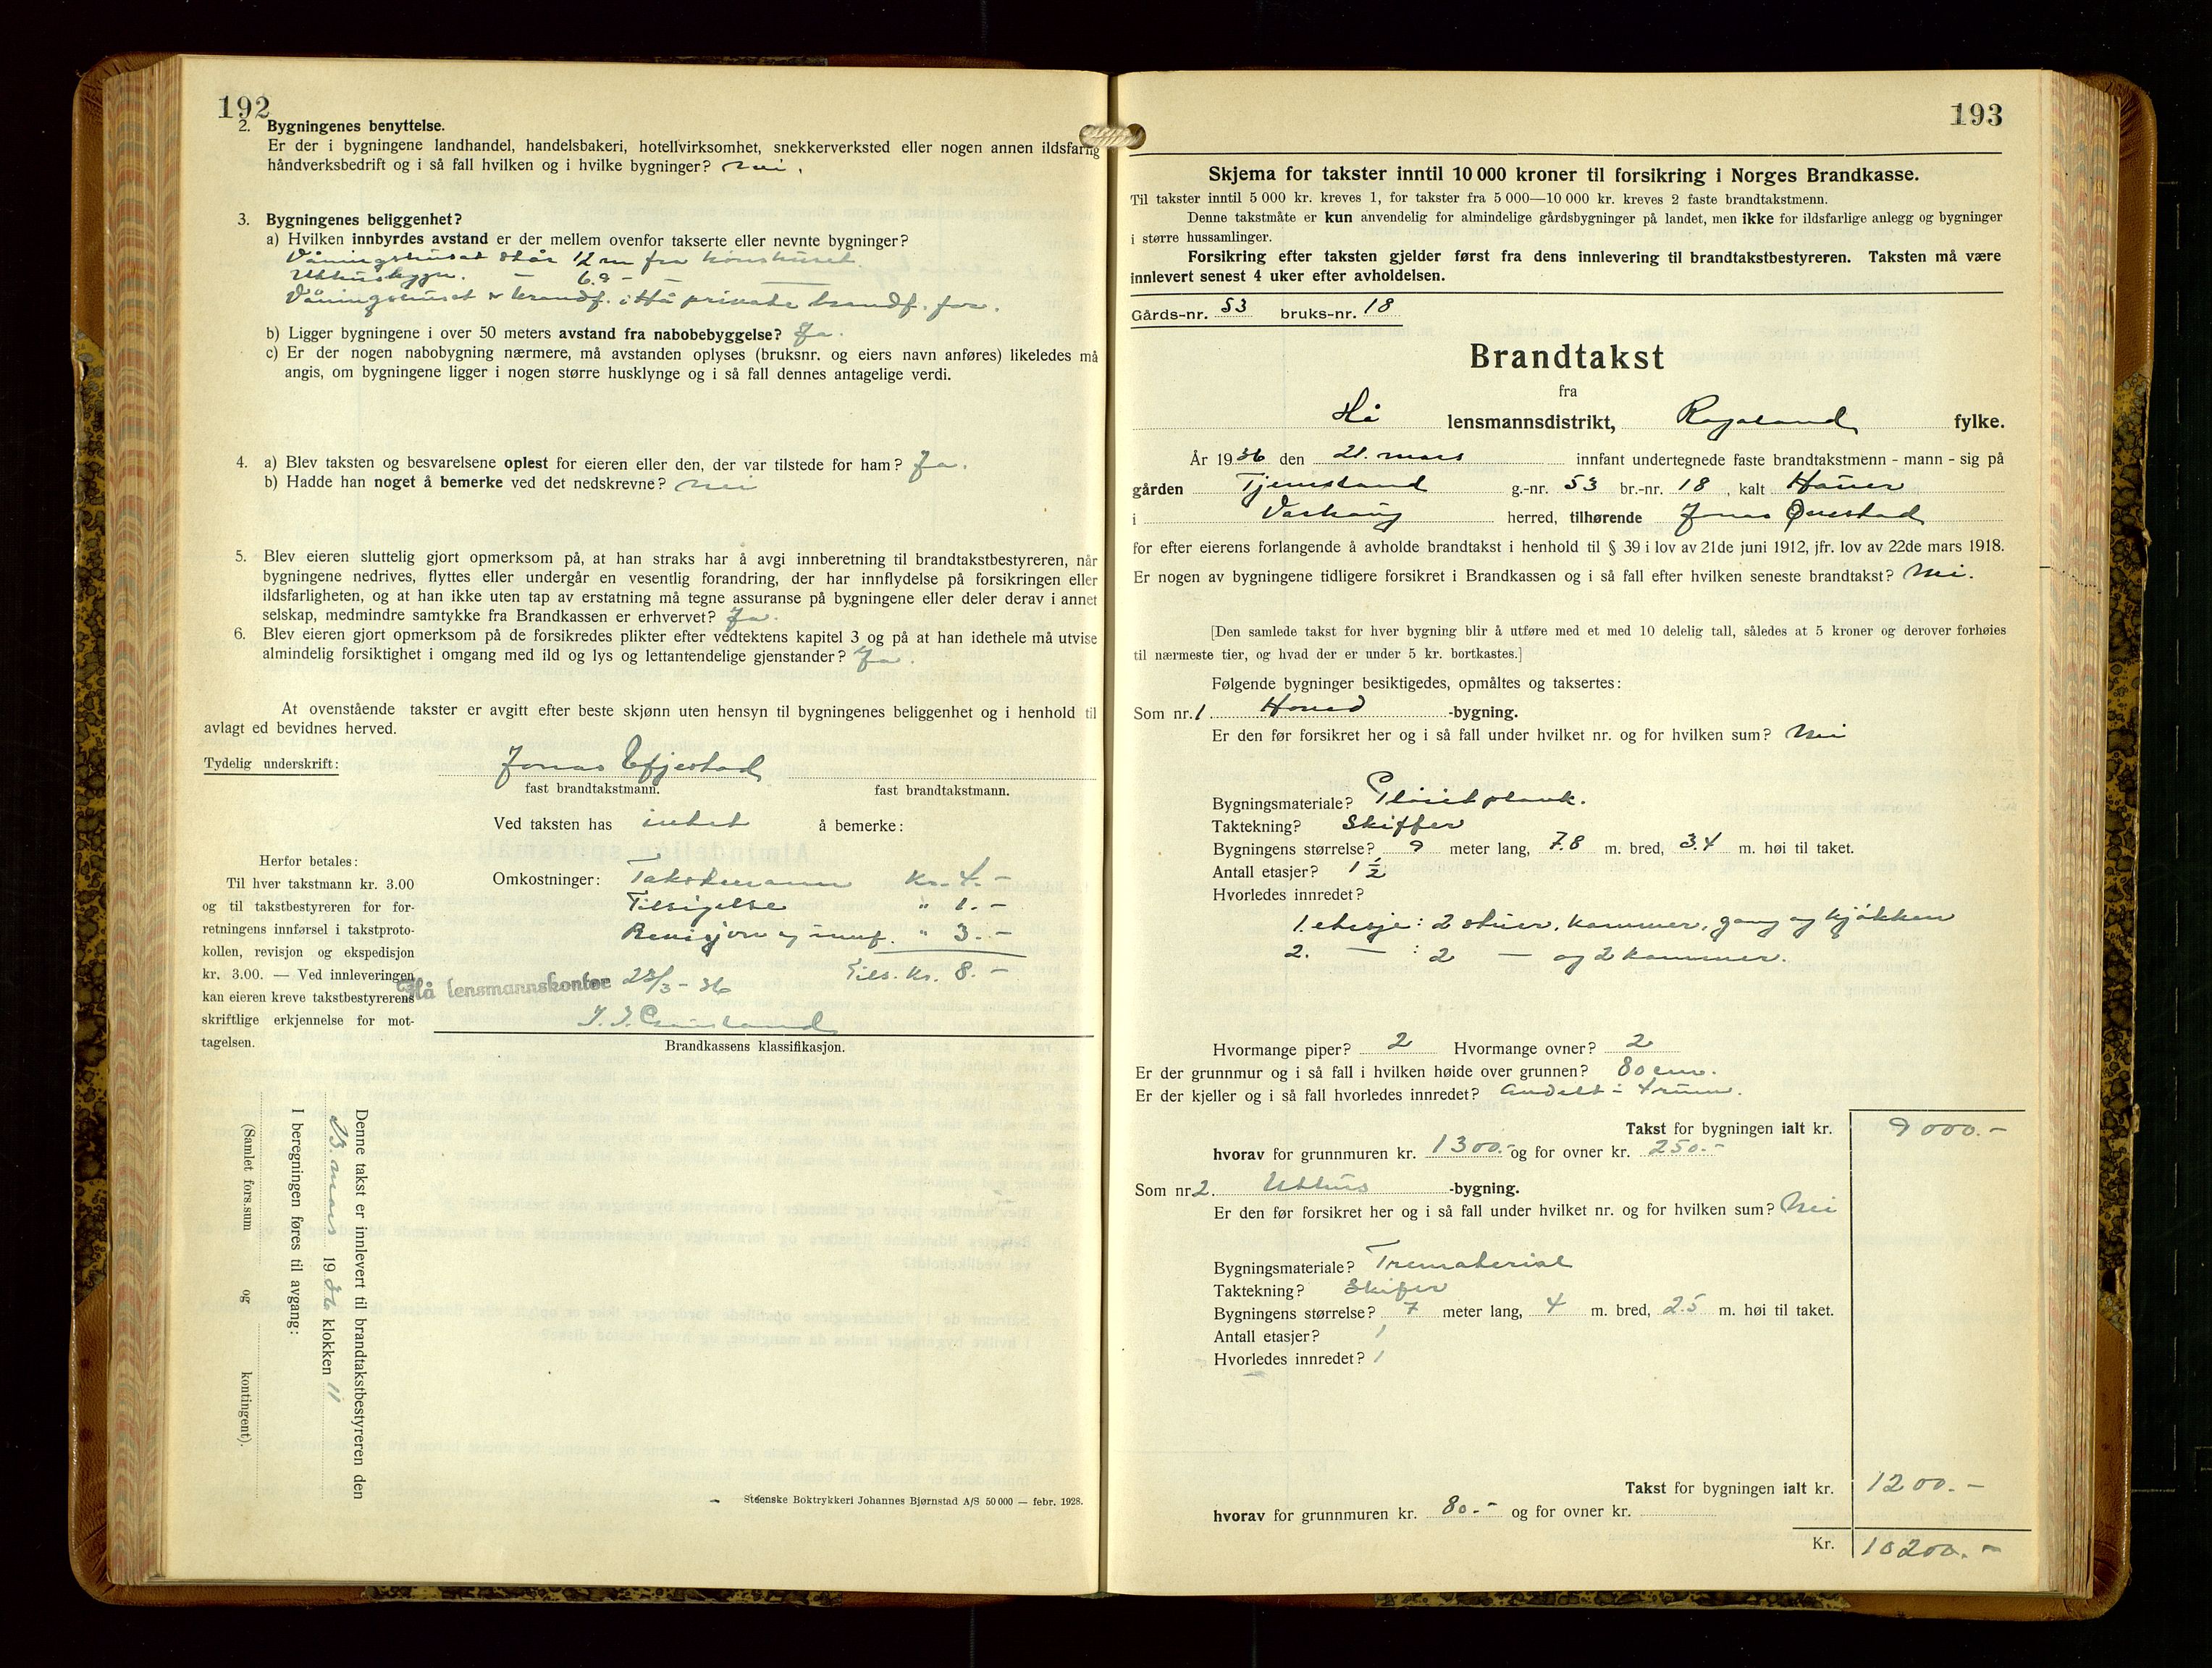 192
2. Bygningenes benyttelse.
Er der i bygningene landhandel, handelsbakeri, hotellvirksomhet, snekkerverksted eller nogen annen ildsfarlig
håndverksbedrift og i så fall hvilken og i hvilke bygninger? nei.
3. Bygningenes beliggenhet?
a) Hvilken innbyrdes avstand er der mellem ovenfor takserte eller nevnte bygninger?
Våningshuset står 12 m fra hønshuset
Uthusbygn. — 6.9 — —
Våningshuset er brandf. i Hå private brandf. for.
b) Ligger bygningene i over 50 meters avstand fra nabobebyggelse? Ja.
c) Er der nogen nabobygning nærmere, må avstanden oplyses (bruksnr. og eiers navn anføres) likeledes må
angis, om bygningene ligger i nogen større husklynge og i så fall dennes antagelige verdi.
4. a) Blev taksten og besvarelsene oplest for eieren eller den, der var tilstede for ham? Ja.
b) Hadde han noget å bemerke ved det nedskrevne? Nei
5. Blev eieren sluttelig gjort opmerksom på, at han straks har å avgi innberetning til brandtakstbestyreren, når
bygningene nedrives, flyttes eller undergår en vesentlig forandring, der har innflydelse på forsikringen eller
ildsfarligheten, og at han ikke uten tap av erstatning må tegne assuranse på bygningene eller deler derav i annet
selskap, medmindre samtykke fra Brandkassen er erhvervet? Ja.
6. Blev eieren gjort opmerksom på de forsikredes plikter efter vedtektens kapitel 3 og på at han idethele må utvise
almindelig forsiktighet i omgang med ild og lys og lettantendelige gjenstander? Ja.
At ovenstående takster er avgitt efter beste skjønn uten hensyn til bygningenes beliggenhet og i henhold til
avlagt ed bevidnes herved.
Tydelig underskrift: Jonas Efjestad
fast brandtakstmann. fast brandtakstmann.
Ved taksten has intet å bemerke:
Omkostninger: Takstmann Kr. 4.-
Tilsigelse " 1.-
Revisjon og innf. " 3.-
Tils. Kr. 8.-
Hå lensmannskontor 23/3-36
Brandkassens klassifikasjon.
Herfor betales:
Til hver takstmann kr. 3.00
og til takstbestyreren for for-
retningens innførsel i takstproto-
kollen, revisjon og ekspedisjon
kr. 3.00. — Ved innleveringen
kan eieren kreve takstbestyrerens
skriftlige erkjennelse for mot-
tagelsen.
Denne takst er innlevert til brandtakstbestyreren den
23. mars 1936 klokken 11
I beregningen føres til avgang:
(Samlet fors.sum og kontingent).
Steenske Boktrykkeri Johannes Bjørnstad A/S 50 000 — febr. 1928.
193
Skjema for takster inntil 10 000 kroner til forsikring i Norges Brandkasse.
Til takster inntil 5 000 kr. kreves 1, for takster fra 5 000—10 000 kr. kreves 2 faste brandtakstmenn.
Denne takstmåte er kun anvendelig for almindelige gårdsbygninger på landet, men ikke for ildsfarlige anlegg og bygninger
i større hussamlinger.
Forsikring efter taksten gjelder først fra dens innlevering til brandtakstbestyreren. Taksten må være
innlevert senest 4 uker efter avholdelsen.
Gårds-nr. 53 bruks-nr. 18
Brandtakst
fra
Hå lensmannsdistrikt, Rogaland fylke.
År 1936 den 21. mars innfant undertegnede faste brandtakstmenn - mann - sig på
gården Tjemsland g.-nr. 53 br.-nr. 18, kalt
i Varhaug herred, tilhørende Jonas
for efter eierens forlangende å avholde brandtakst i henhold til § 39 i lov av 21de juni 1912, jfr. lov av 22de mars 1918.
Er nogen av bygningene tidligere forsikret i Brandkassen og i så fall efter hvilken seneste brandtakst? Nei.
[Den samlede takst for hver bygning blir å utføre med et med 10 delelig tall, således at 5 kroner og derover forhøies
til nærmeste tier, og hvad der er under 5 kr. bortkastes.]
Følgende bygninger besiktigedes, opmåltes og taksertes:
Som nr. 1 Hoved -bygning.
Er den før forsikret her og i så fall under hvilket nr. og for hvilken sum? Nei
Bygningsmateriale?
Taktekning? Skiffer
Bygningens størrelse? 9 meter lang, 7.8 m. bred, 3.4 m. høi til taket.
Antall etasjer? 1 1/2
Hvorledes innredet?
1. etasje: 2 stuer, kammer, gang og kjøkken
2. — : 2 — og 2 kammer.
Hvormange piper? 2 Hvormange ovner? 2
Er der grunnmur og i så fall i hvilken høide over grunnen? 80 cm.
Er der kjeller og i så fall hvorledes innredet? Andelt i 4 rum.
Takst for bygningen ialt kr. 9000.-
hvorav for grunnmuren kr. 1300.- og for ovner kr. 250.-
Som nr. 2. Uthus -bygning.
Er den før forsikret her og i så fall under hvilket nr. og for hvilken sum? Nei
Bygningsmateriale? Trematerial
Taktekning? Skifer
Bygningens størrelse? 7 meter lang, 4 m. bred, 2.5 m. høi til taket.
Antall etasjer? 1
Hvorledes innredet? /
Takst for bygningen ialt kr. 1200.-
hvorav for grunnmuren kr. 80.- og for ovner kr.
Kr. 10200.-